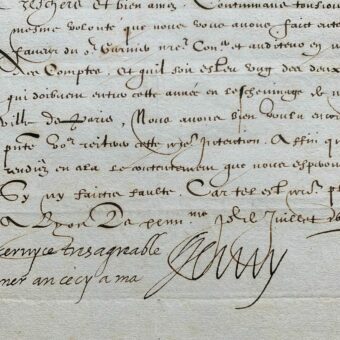 et bien amez Continuans tousiou
mesme volonté que nous vous avons faict ente
faveur du sr Garnier nre Conser et auditeur en n
des Comptes, et quil soit esleu ung des deux
qui doibvent entrer ceste année en leschevinage de n
ville de Paris, Nous avons bien voulu encor
pnte vous reiterer ceste nre Intention. Affin qu
rendiez en cela le contentement que nous esperon
Sy ny faictes faulte. Car tel est nre pl
A Lyon De Juillet
service tresagreable
ancecy a ma
Henry